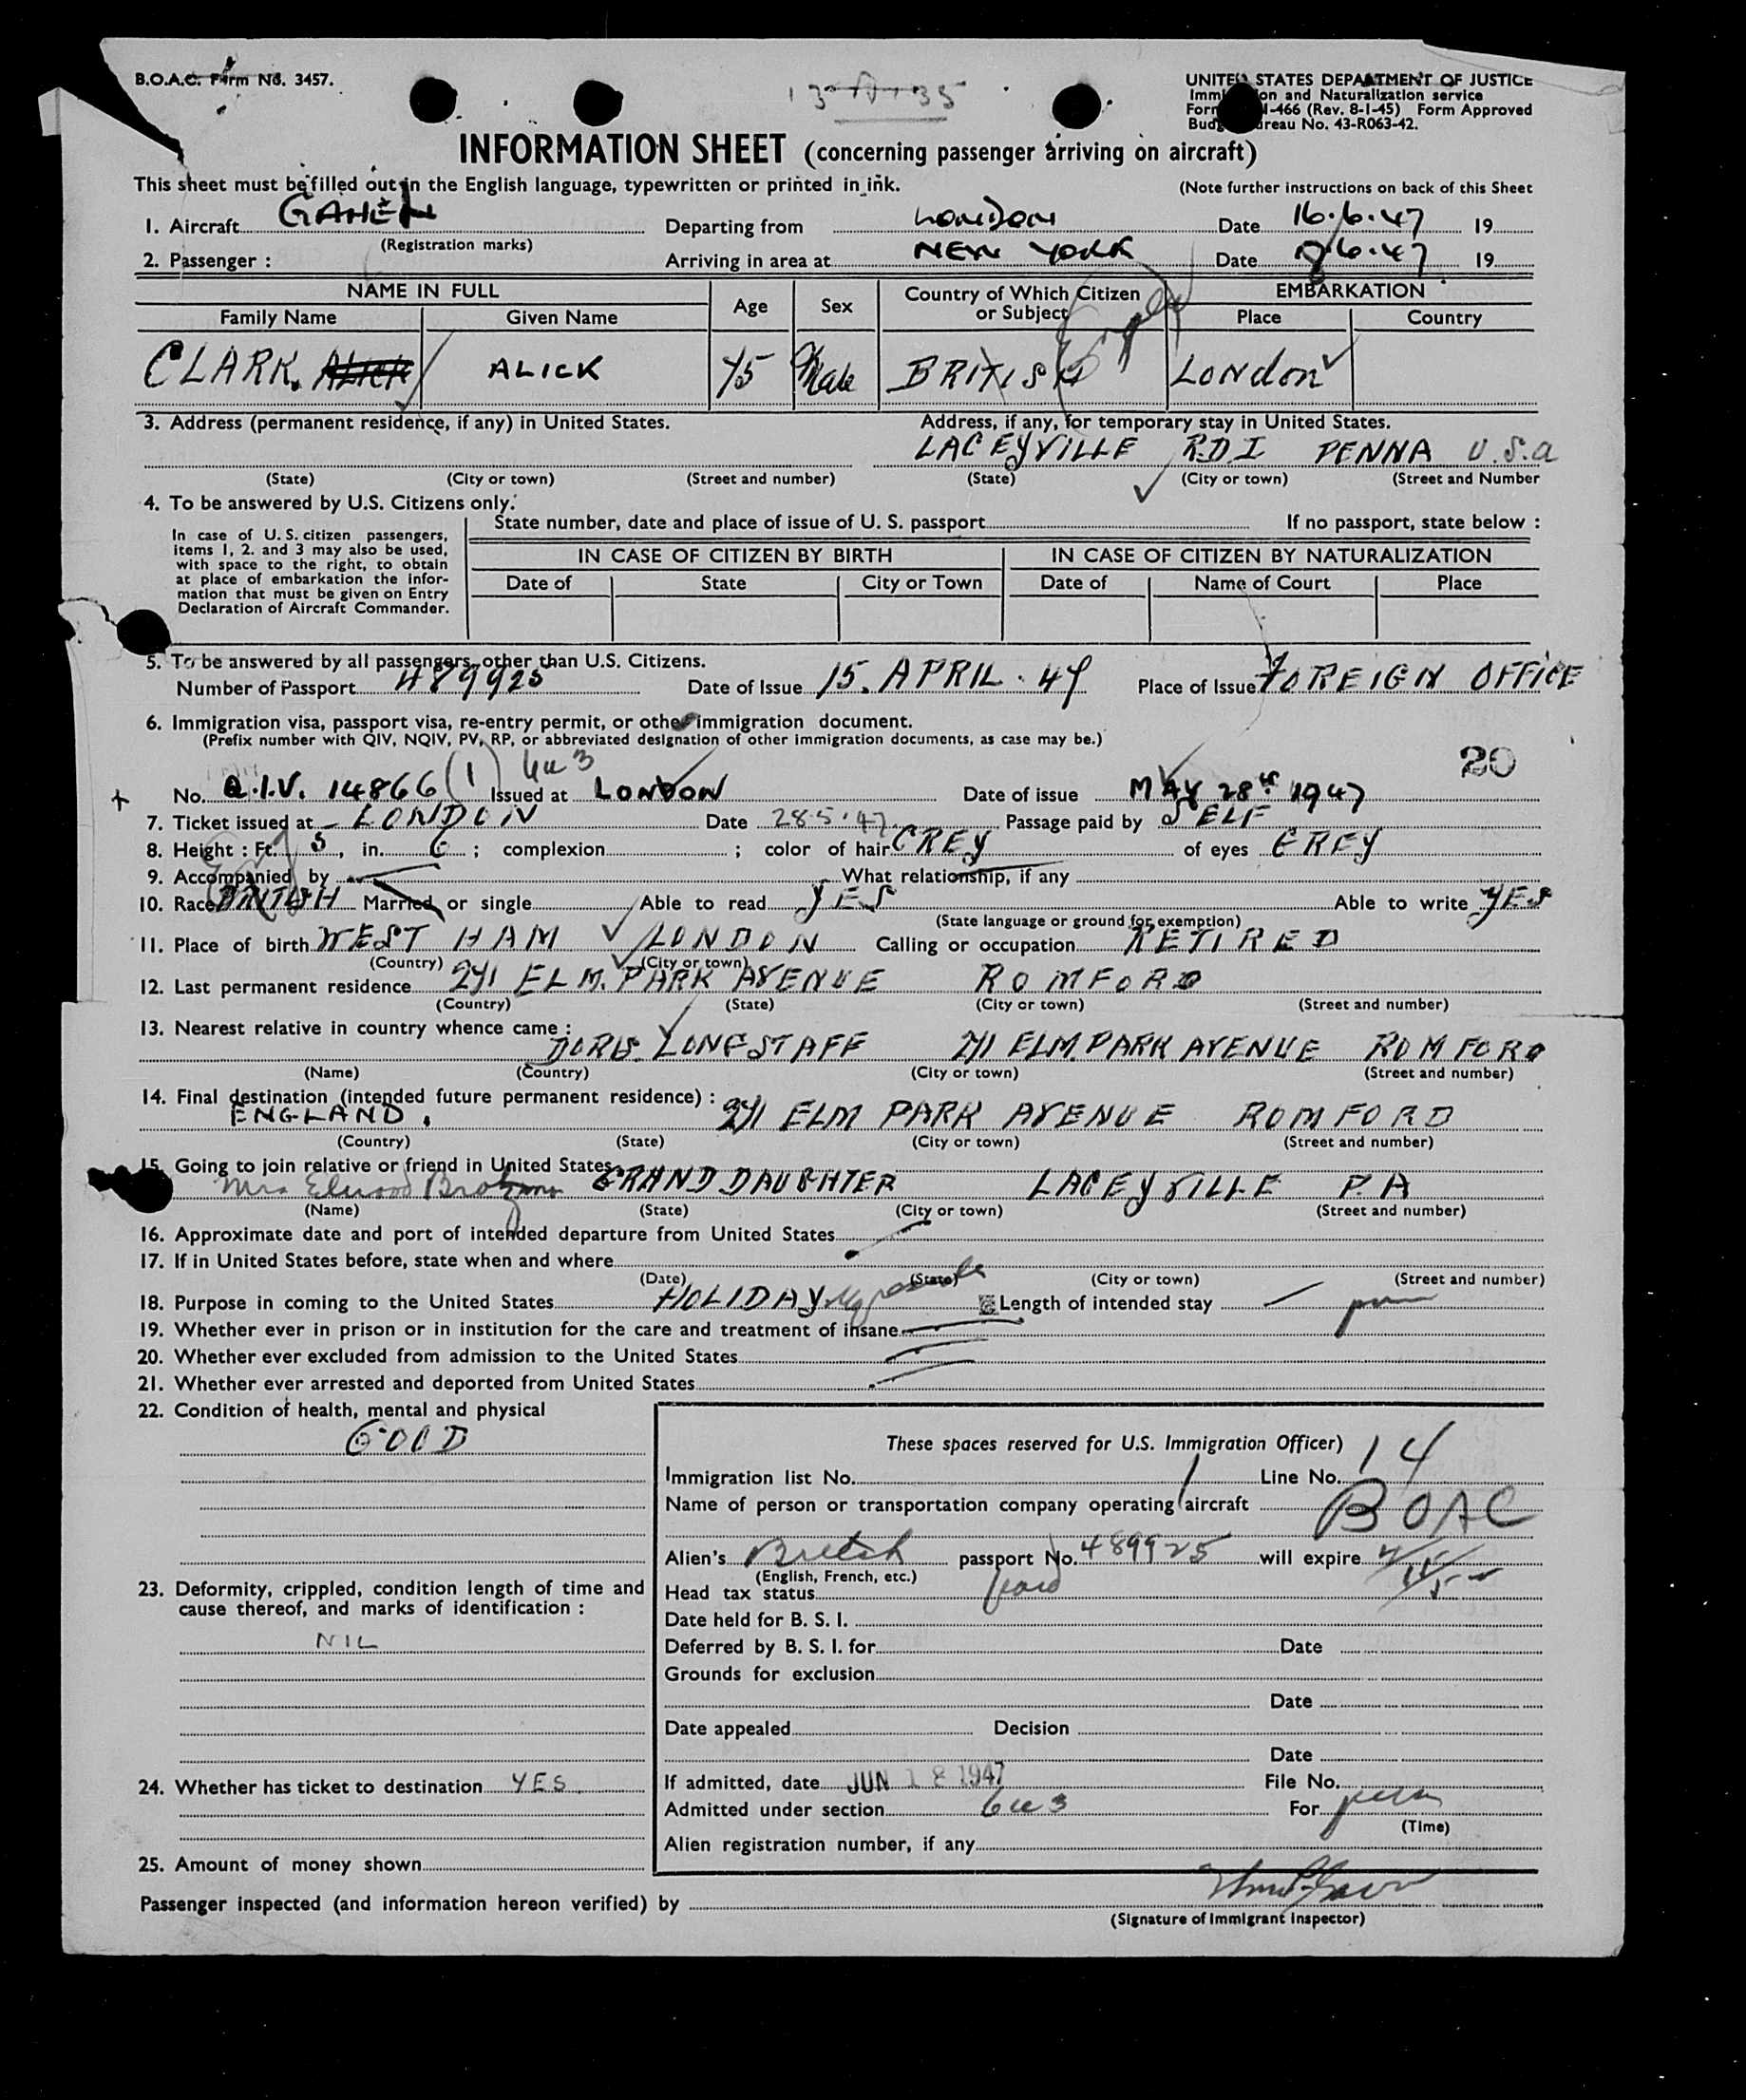 B.O.A.C. Form No. 3457.
UNITED STATES DEPARTMENT OF JUSTICE
and Naturalization service
Form I-466 (Rev. 8-1-45) Form Approved
No. 43-R063-42.
INFORMATION SHEET (concerning passenger arriving on aircraft)
This sheet must be filled out in the English language, typewritten or printed in ink. (Note further instructions on back of this Sheet
1. Aircraft GAHEN Departing from LONDON Date 16.6.47 19
(Registration marks)
2. Passenger : Arriving in area at NEW YORK Date 6.47 19
NAME IN FULL Age Sex Country of Which Citizen or Subject EMBARKATION
Family Name Given Name Place Country
CLARK. ALICK 75 Male BRITISH London
3. Address (permanent residence, if any) in United States. Address, if any, for temporary stay in United States.
LACEYVILLE R.D.I PENNA U.S.a
(State) (City or town) (Street and number) (State) (City or town) (Street and Number
4. To be answered by U.S. Citizens only.
State number, date and place of issue of U. S. passport If no passport, state below :
In case of U. S. citizen passengers, items 1, 2. and 3 may also be used, with space to the right, to obtain at place of embarkation the information that must be given on Entry Declaration of Aircraft Commander.
IN CASE OF CITIZEN BY BIRTH IN CASE OF CITIZEN BY NATURALIZATION
Date of State City or Town Date of Name of Court Place
5. To be answered by all passengers other than U.S. Citizens.
Number of Passport 489925 Date of Issue 15. APRIL. 47 Place of Issue FOREIGN OFFICE
6. Immigration visa, passport visa, re-entry permit, or other immigration document.
(Prefix number with QIV, NQIV, PV, RP, or abbreviated designation of other immigration documents, as case may be.)
20
No. Q.I.V. 14866 (1) Issued at LONDON Date of issue MAY 28th 1947
7. Ticket issued at LONDON Date 28.5.47 Passage paid by SELF
8. Height : Ft. 5, in. 6 ; complexion ; color of hair GREY of eyes GREY
9. Accompanied by What relationship, if any
10. Race BRITISH Married or single Able to read YES Able to write YES
(State language or ground for exemption)
11. Place of birth WEST HAM LONDON Calling or occupation RETIRED
(Country) (City or town)
12. Last permanent residence 241 ELM. PARK AVENUE ROMFORD
(Country) (State) (City or town) (Street and number)
13. Nearest relative in country whence came :
DORIS LONGSTAFF 241 ELM. PARK AVENUE ROMFORD
(Name) (Country) (City or town) (Street and number)
14. Final destination (intended future permanent residence) :
ENGLAND. 241 ELM PARK AVENUE ROMFORD
(Country) (State) (City or town) (Street and number)
15. Going to join relative or friend in United States
Mrs Elwood GRAND DAUGHTER LACEYVILLE P.A
(Name) (State) (City or town) (Street and number)
16. Approximate date and port of intended departure from United States
17. If in United States before, state when and where
(Date) (State) (City or town) (Street and number)
18. Purpose in coming to the United States HOLIDAY Length of intended stay
19. Whether ever in prison or in institution for the care and treatment of insane
20. Whether ever excluded from admission to the United States
21. Whether ever arrested and deported from United States
22. Condition of health, mental and physical
GOOD
These spaces reserved for U.S. Immigration Officer)
Immigration list No. 1 Line No. 14
Name of person or transportation company operating aircraft BOAC
Alien's British passport No. 489925 will expire
(English, French, etc.)
23. Deformity, crippled, condition length of time and cause thereof, and marks of identification :
NIL
Head tax status paid
Date held for B. S. I.
Deferred by B. S. I. for Date
Grounds for exclusion
Date
Date appealed Decision
Date
24. Whether has ticket to destination YES
If admitted, date JUN 18 1947 File No.
Admitted under section 6a3 For perm
(Time)
Alien registration number, if any
25. Amount of money shown
Passenger inspected (and information hereon verified) by
(Signature of Immigrant Inspector)